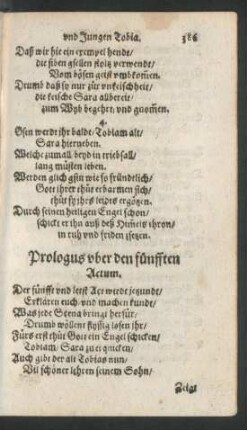 vnd Jungen Tobia. 186
Daß wir hie ein exempel hendt/
die siben gsellen stoltz verwendt/
Vom bösen geist vmbkom̃en.
Drumb daß so nur zur vnkeischheit/
die keische Sara allbereit/
zum Wyb begehrt vnd gnom̃en.
4.
Gsen werdt jhr baldt/ Tobiam alt/
Sara hierneben.
Welche zumall beyd in triebsall/
lang müsten leben.
Werden glich gsin wie so fründelich/
Gott jhrer thüt erbarmen sich/
thüt sy jhrs leides ergötzen.
Durch seinen heiligen Engel schon/
schickt er jhn auß deß Him̃els thron/
in ruh vnd friden setzen.
Prologus vber den fünfften
Actum.
Der fünfft vnd letst Act werdt jetzundt/
Erklären euch vnd machen kundt/
Was jede Scena bringt herfür/
Drumb wöllent flyssig losen jhr/
Fürs erst thüt Gott ein Engel schicken/
Tobiam/ Sara zu erquicken/
Auch gibt der alt Tobias nun/
Vil schöner lehren seinem Sohn/
Zeigt